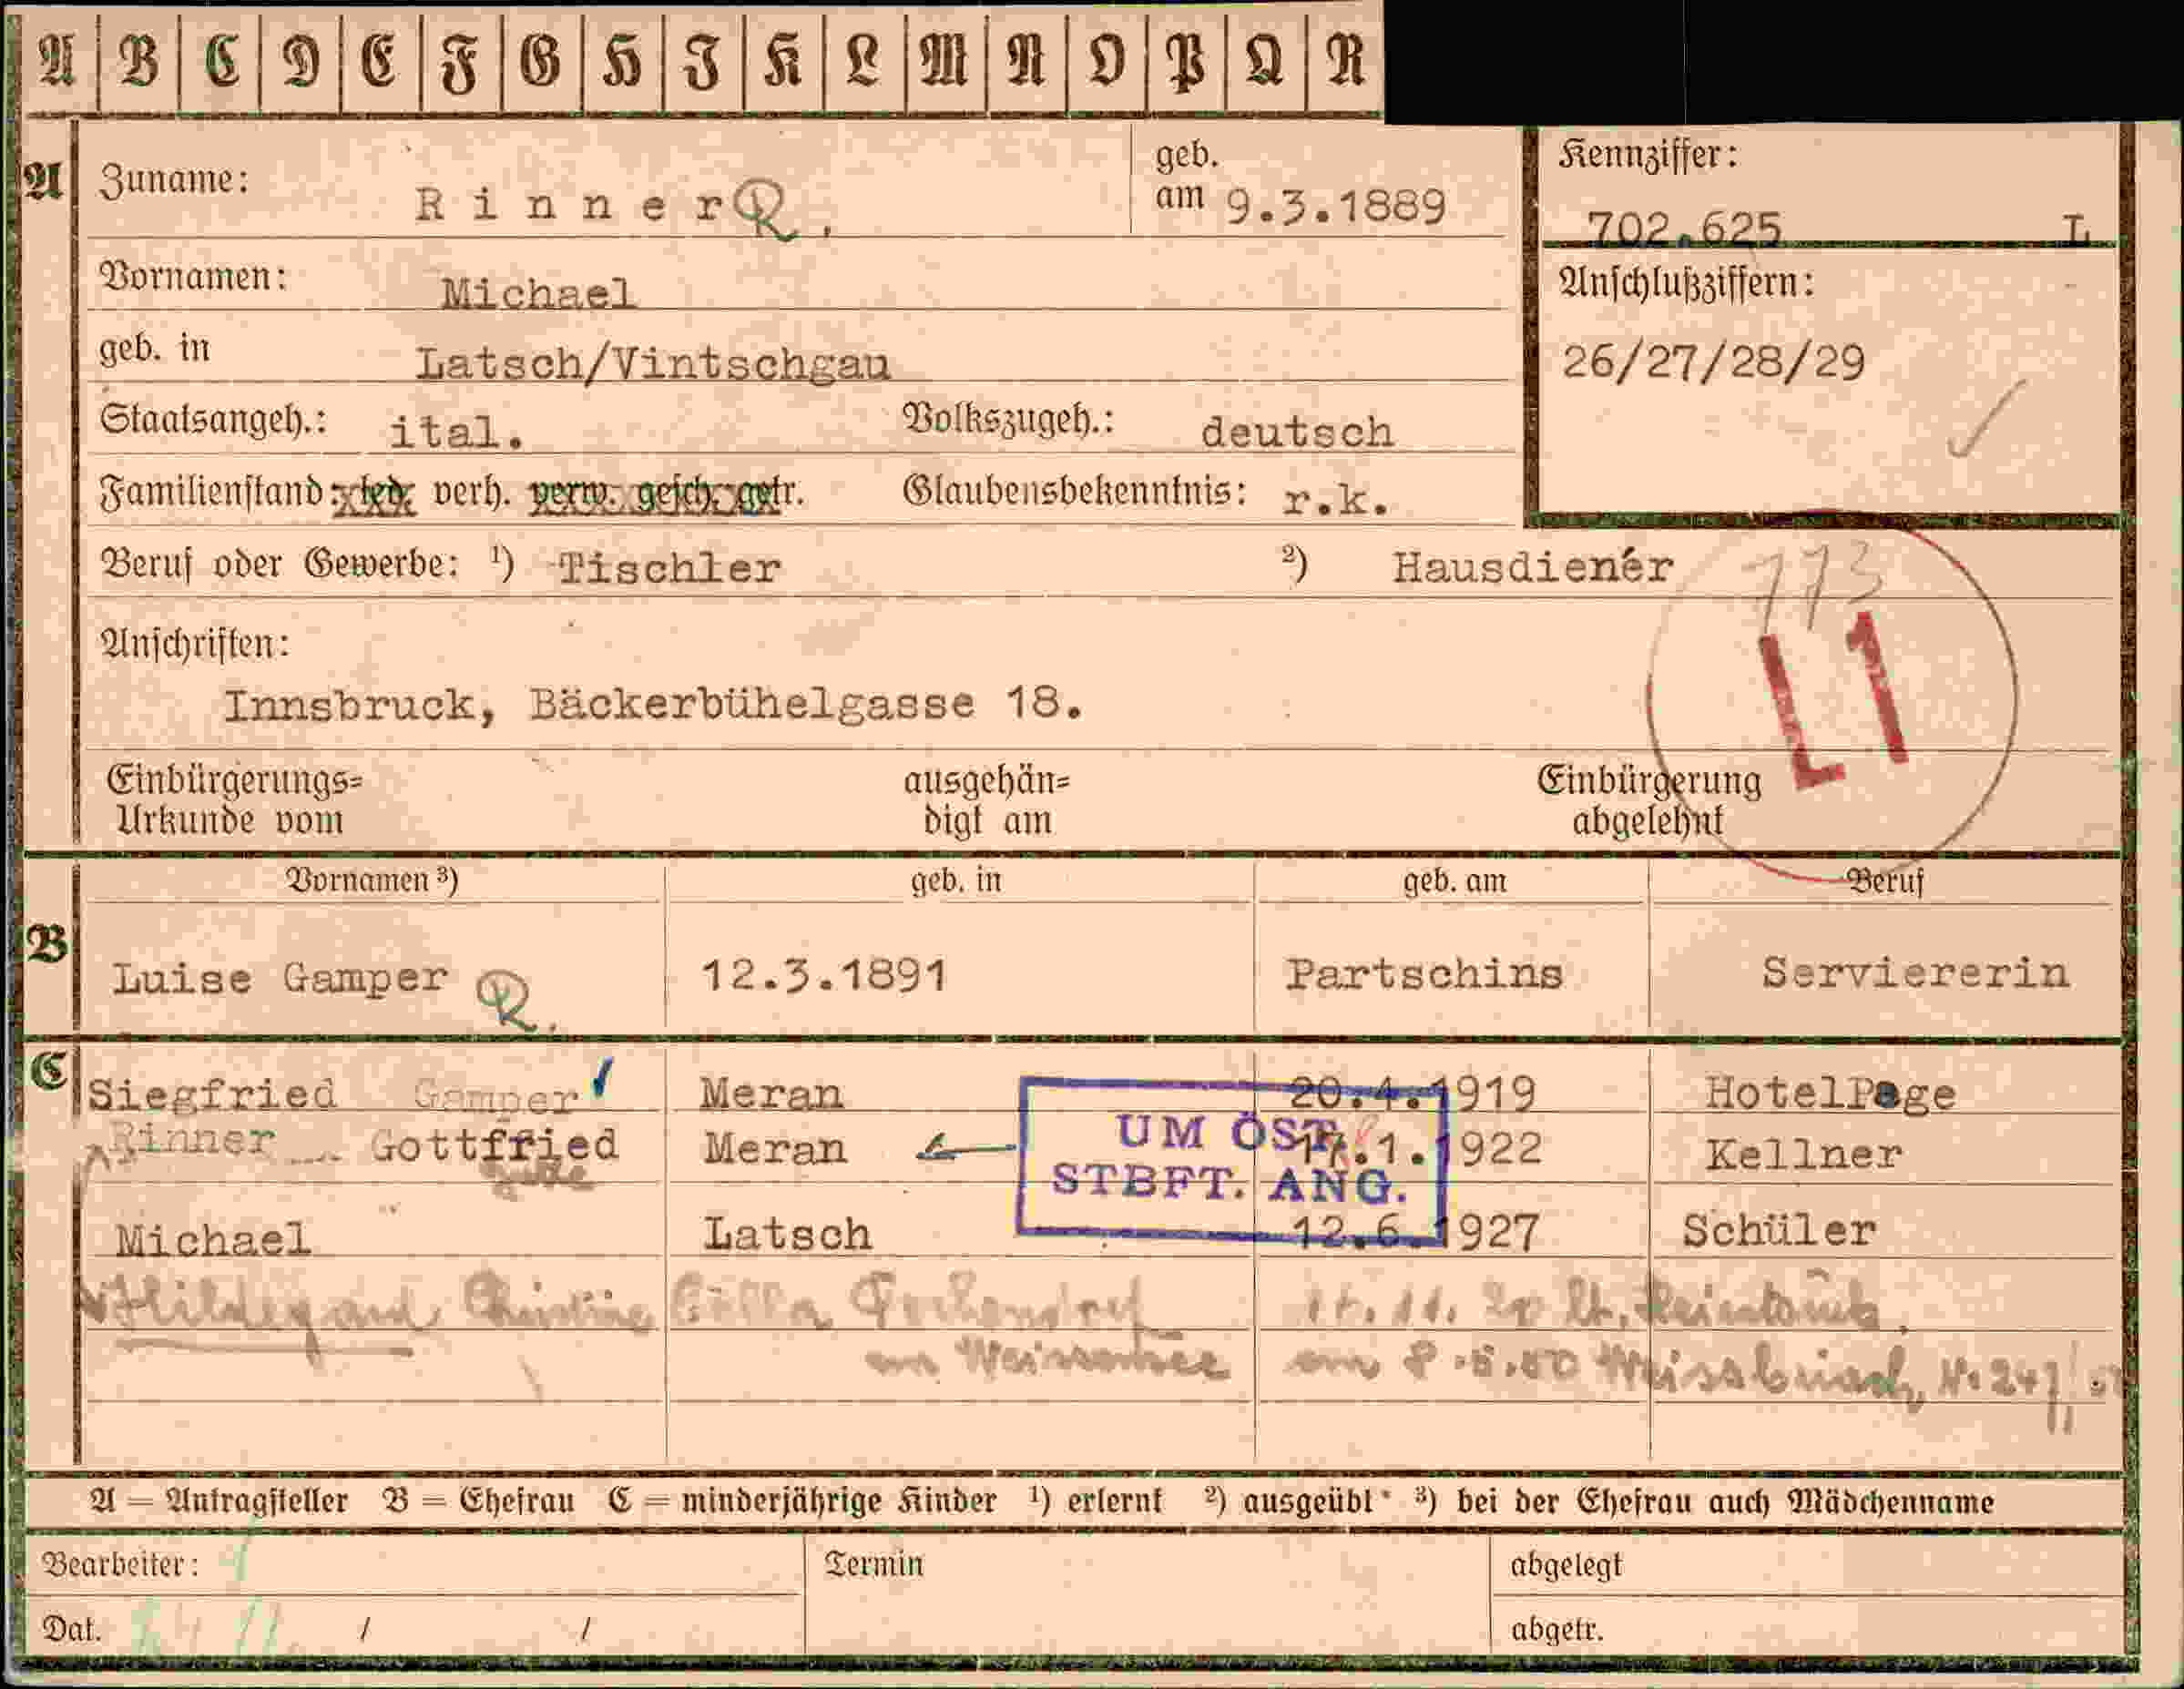 A B C D E F G H I K L M N O P Q R
A Zuname: Rinner R. geb. am 9.3.1889
Kennziffer: 702.625 L
Vornamen: Michael
Anschlußziffern:
26/27/28/29
geb. in Latsch/Vintschgau
Staatsangeh.: ital. Volkszugeh.: deutsch
Familienstand: led. verh. verw. gesch. getr. Glaubensbekenntnis: r.k.
Beruf oder Gewerbe: ¹) Tischler ²) Hausdiener
773
L1
Anschriften:
Innsbruck, Bäckerbühelgasse 18.
Einbürgerungs=
Urkunde vom
ausgehän=
digt am
Einbürgerung
abgelehnt
Vornamen ³) geb. in geb. am Beruf
B Luise Gamper R. 12.3.1891 Partschins Serviererin
C Siegfried Gamper Meran 20.4.1919 HotelPage
Rinner Gottfried Meran 17.1.1922 Kellner
UM ÖST.
STBFT. ANG.
Michael Latsch 12.6.1927 Schüler
Hildegard Christine
am 8.5.50 Weissbriach
A = Antragsteller B = Ehefrau C = minderjährige Kinder ¹) erlernt ²) ausgeübt ³) bei der Ehefrau auch Mädchenname
Bearbeiter: Termin abgelegt
Dat. / / abgetr.